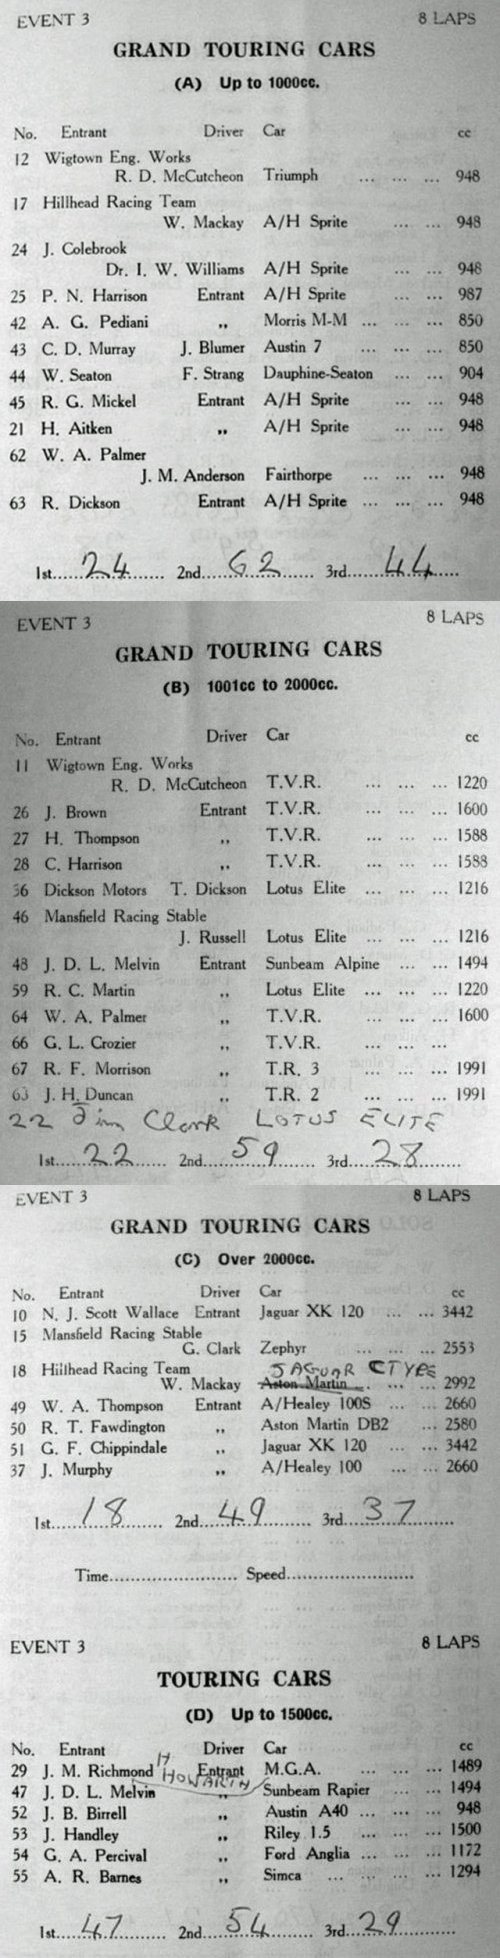 EVENT 3 8 LAPS
GRAND TOURING CARS
(A) Up to 1000cc.
No. Entrant Driver Car cc
12 Wigtown Eng. Works
R. D. McCutcheon Triumph ... ... ... 948
17 Hillhead Racing Team
W. Mackay A/H Sprite ... ... 948
24 J. Colebrook
Dr. I. W. Williams A/H Sprite ... ... 948
25 P. N. Harrison Entrant A/H Sprite ... ... 987
42 A. G. Pediani ,, Morris M-M ... ... ... 850
43 C. D. Murray J. Blumer Austin 7 ... ... ... 850
44 W. Seaton F. Strang Dauphine-Seaton ... ... 904
45 R. G. Mickel Entrant A/H Sprite ... ... 948
21 H. Aitken ,, A/H Sprite ... ... 948
62 W. A. Palmer
J. M. Anderson Fairthorpe ... ... ... 948
63 R. Dickson Entrant A/H Sprite ... ... ... 948
1st......24...... 2nd......62...... 3rd......44......
EVENT 3 8 LAPS
GRAND TOURING CARS
(B) 1001cc to 2000cc.
No. Entrant Driver Car cc
11 Wigtown Eng. Works
R. D. McCutcheon T.V.R. ... ... ... 1220
26 J. Brown Entrant T.V.R. ... ... ... 1600
27 H. Thompson ,, T.V.R. ... ... ... 1588
28 C. Harrison ,, T.V.R. ... ... ... 1588
36 Dickson Motors T. Dickson Lotus Elite ... ... ... 1216
46 Mansfield Racing Stable
J. Russell Lotus Elite ... ... ... 1216
48 J. D. L. Melvin Entrant Sunbeam Alpine ... ... 1494
59 R. C. Martin ,, Lotus Elite ... ... ... 1220
64 W. A. Palmer ,, T.V.R. ... ... ... 1600
66 G. L. Crozier ,, T.V.R. ... ... ...
67 R. F. Morrison ,, T.R. 3 ... ... ... 1991
63 J. H. Duncan ,, T.R. 2 ... ... ... 1991
22 Jim Clark LOTUS ELITE
1st......22...... 2nd......59...... 3rd......28......
EVENT 3 8 LAPS
GRAND TOURING CARS
(C) Over 2000cc.
No. Entrant Driver Car cc
10 N. J. Scott Wallace Entrant Jaguar XK 120 ... ... 3442
15 Mansfield Racing Stable
G. Clark Zephyr ... ... ... 2553
18 Hillhead Racing Team JAGUAR CTYPE
W. Mackay Aston Martin ... ... ... 2992
49 W. A. Thompson Entrant A/Healey 100S ... ... 2660
50 R. T. Fawdington ,, Aston Martin DB2 ... 2580
51 G. F. Chippindale ,, Jaguar XK 120 ... ... 3442
37 J. Murphy ,, A/Healey 100 ... ... 2660
1st......18...... 2nd......49...... 3rd......37......
Time............ Speed............
EVENT 3 8 LAPS
TOURING CARS
(D) Up to 1500cc.
No. Entrant Driver Car cc
29 J. M. Richmond Entrant M.G.A. ... ... ... 1489
H HOWARTH
47 J. D. L. Melvin ,, Sunbeam Rapier ... ... 1494
52 J. B. Birrell ,, Austin A40 ... ... ... 948
53 J. Handley ,, Riley 1.5 ... ... ... 1500
54 G. A. Percival ,, Ford Anglia ... ... ... 1172
55 A. R. Barnes ,, Simca ... ... ... ... 1294
1st......47...... 2nd......54...... 3rd......29......